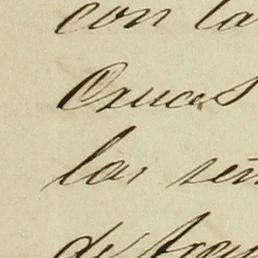 con la
Cruces
las señ
de fran